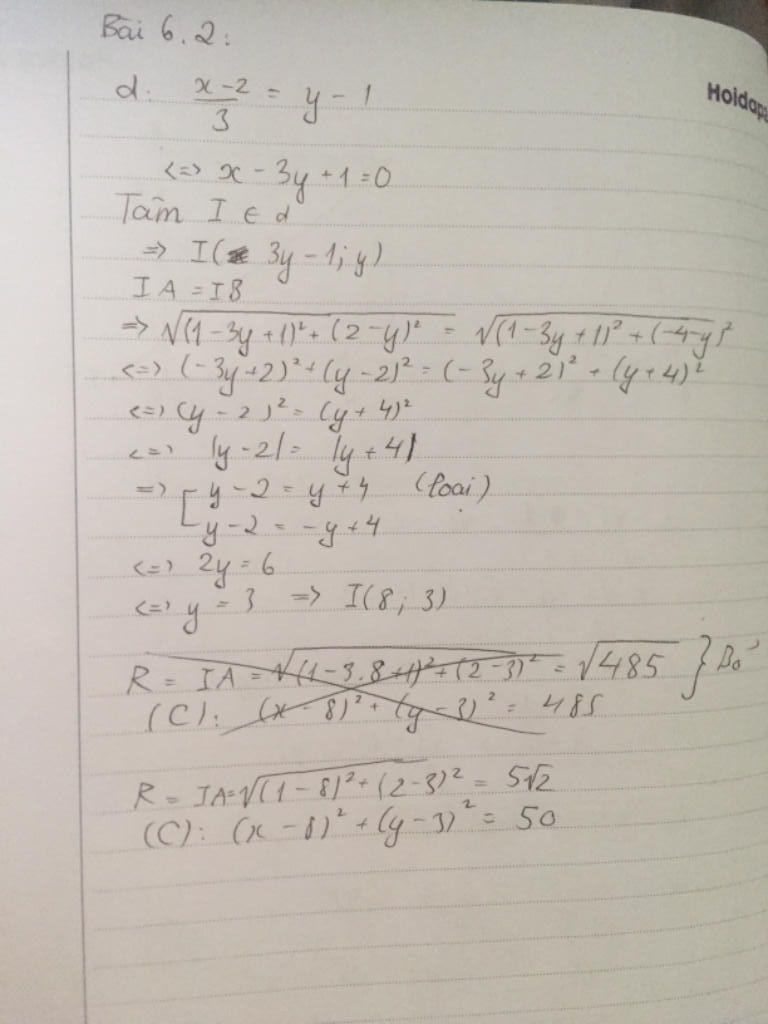 Bài 6.2:
Hoidap
d: x-2/3 = y - 1
<=> x - 3y + 1 = 0
Tâm I ∈ d
=> I( 3y - 1; y)
IA = IB
=> √(1 - 3y + 1)² + (2 - y)² = √(1 - 3y + 1)² + (-4 - y)²
<=> (-3y + 2)² + (y - 2)² = (-3y + 2)² + (y + 4)²
<=> (y - 2)² = (y + 4)²
<=> |y - 2| = |y + 4|
=> [ y - 2 = y + 4 (loại)
y - 2 = - y + 4
<=> 2y = 6
<=> y = 3 => I(8; 3)
R = IA = √(1 - 3.8 + 1)² + (2 - 3)² = √485 } Bỏ
(C): (x - 8)² + (y - 3)² = 485
R = IA = √(1 - 8)² + (2 - 3)² = 5√2
(C): (x - 8)² + (y - 3)² = 50